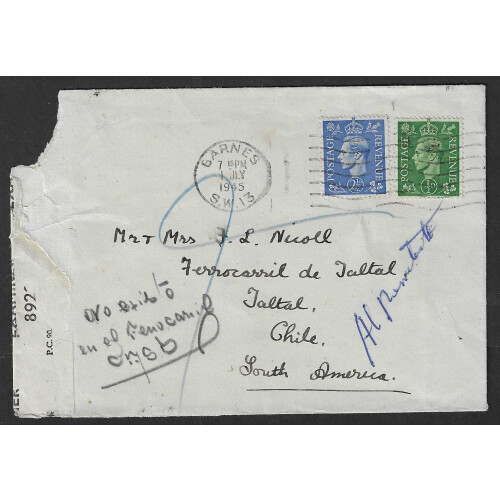 BARNES
7 15 PM
1 JLY
1945
S.W.13
POSTAGE REVENUE
2½D
POSTAGE REVENUE
½D
Mr & Mrs J. L. Nicoll
Ferrocarril de Taltal
Taltal,
Chile,
South America.
Al Remitente
No
en el Ferrocarril
P.C. 90.
892